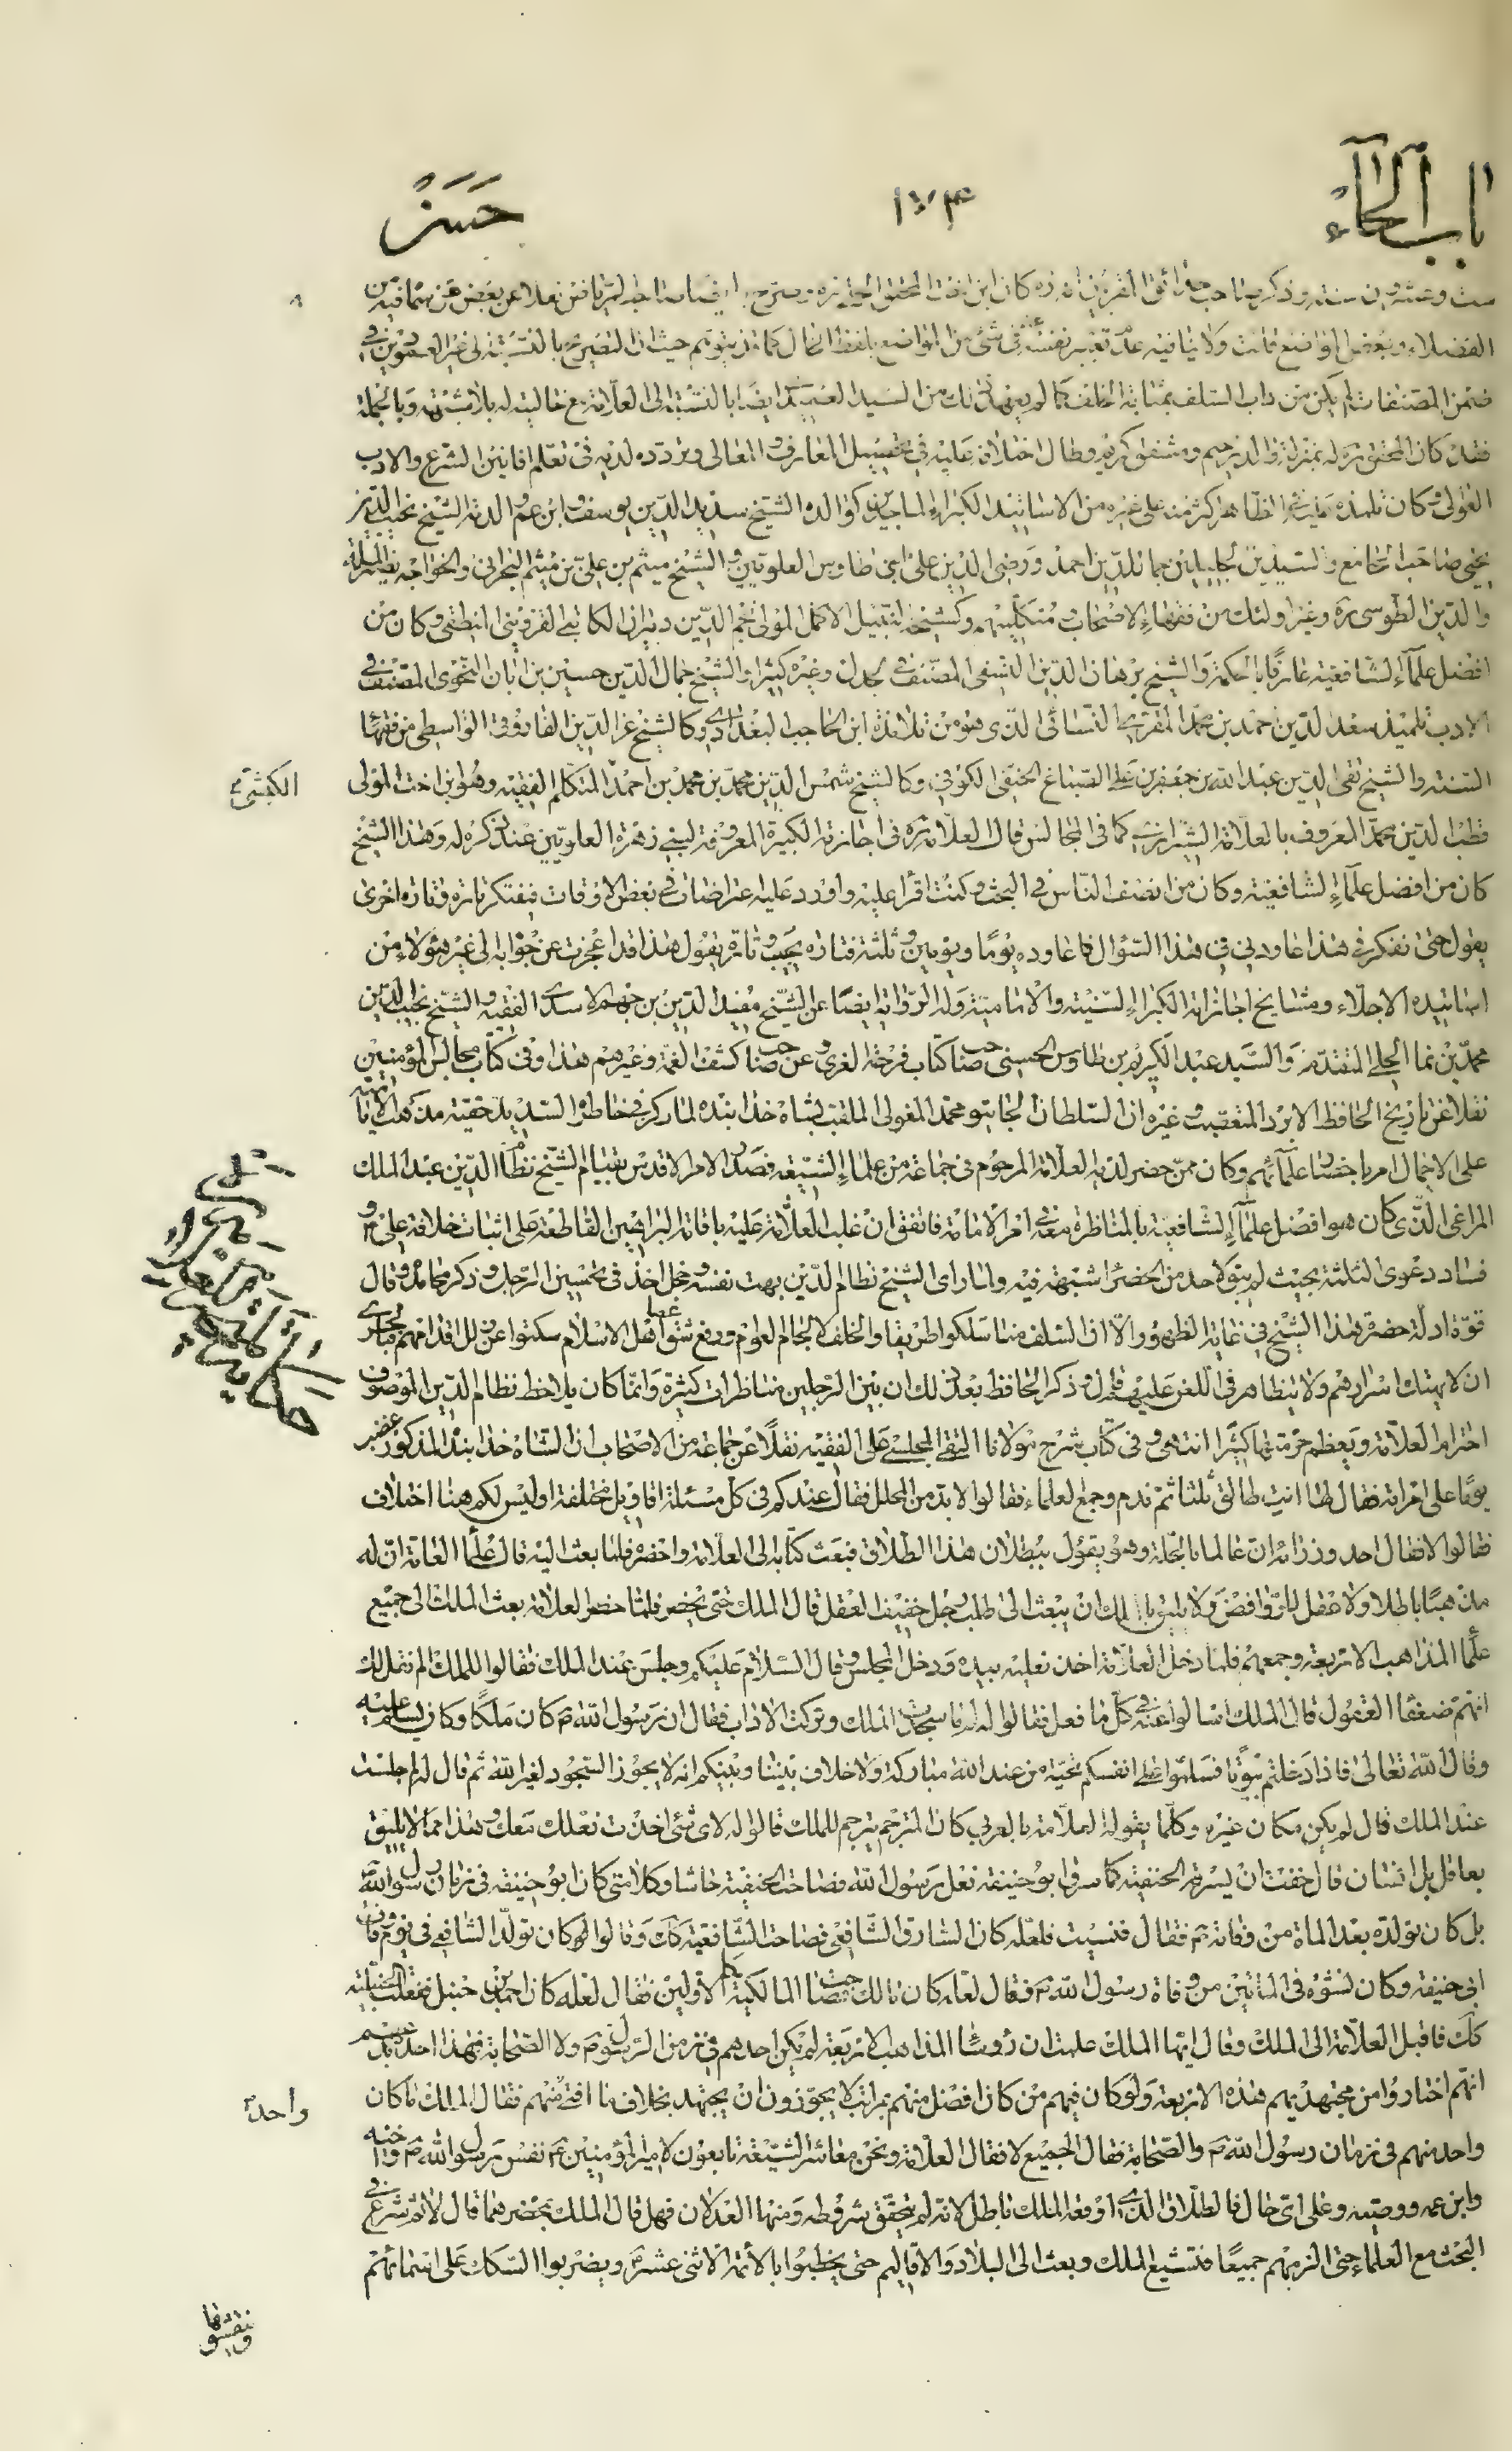 باب الحاء
١٧٤
حسن
ست وعشرين سنة وذكر صاحب حدائق المقربين انه ره كان ابن اخت المحقق الحلي ره
الفضلاء وبعض المواضع قلت ولا ينافيه عدم تعبير نفسه في شئ من المواضع بلفظ الخال كما قد يتوهم حيث ان التصريح بالنسبة الى غير العمودين في
ضمن المصنفات لم يكن من داب السلف بمثابة الخلف كما لم يعهد ذلك من السيد العميدي ايضا بالنسبة الى العلامة مع خاليته له بلا شبهة وبالجملة
فقد كان المحقق ره له بمنزلة والد رحيم ومشفق كريم وطال اختلافه عليه في تحصيل المعارف والمعالى وتردده لديه في تعلم افانين الشرع والادب
والعوالى وكان تلمذه عليه في الظاهر اكثر منه على غيره من الاساتيد الكبراء الماجدين كوالده الشيخ سديد الدين يوسف وابن عم والدته الشيخ نجيب الدين
يحيى صاحب الجامع والسيدين الجليلين جمال الدين احمد ورضى الدين على ابنى طاوس العلويين والشيخ ميثم بن على بن ميثم البحرانى والخواجه نصير الملة
والدين الطوسى ره وغير اولئك من فقهاء الاصحاب ومتكلميهم وكشيخه النبيل الاكمل المولى نجم الدين دبيران الكاتبي القزوينى المنطقى وكان من
افضل علماء الشافعية عارفا بالحكمة والشيخ برهان الدين النسفى المصنف في الجدل وغيره كثيرا والشيخ جمال الدين حسين بن ابان النحوى المصنف في
الادب تلميذ سعد الدين احمد بن محمد المقرى النسائى الذى هو من تلامذة ابن الحاجب البغدادى وكالشيخ عز الدين الفاروقى الواسطى من فقهاء
السنة والشيخ تقى الدين عبد الله بن جعفر بن علي الصباغ الحنفى الكوفى وكالشيخ شمس الدين محمد بن محمد بن احمد المتكلم الفقيه وهو ابن اخت المولى
الكيشى
قطب الدين محمد المعروف بالعلامة الشيرازى كما في المجالس قال العلامة ره في اجازته الكبيرة المعروفة لبنى زهرة العلويين عند ذكره له وهذا الشيخ
كان من افضل علماء الشافعية وكان من انصف الناس في البحث وكنت اقرأ عليه واورد عليه اعتراضات في بعض الاوقات فيفتكر تارة وتارة اخرى
يقول حتى نفكر في هذا عاودنى في هذا السؤال فاعاوده يوما ويومين وثلثة فتارة يجيب وتارة يقول هذا قد عجزت عن جوابه الى غير هؤلاء من
اساتيده الاجلاء ومشايخ اجازاته الكبراء السنية والامامية وله الرواية ايضا عن الشيخ مفيد الدين بن جهم الاسدى الفقيه والشيخ نجيب الدين
محمد بن نما الحلى المتقدم والسيد عبد الكريم بن طاوس الحسنى صاحب كتاب فرحة الغرى وعن صاحب كشف الغمة وغيرهم هذا وفي كتاب مجالس المؤمنين
نقلا عن تاريخ الحافظ الابرد المتعصب وغيره ان السلطان الجايتو محمد المغولى الملقب بشاه خدا بنده لما ركز في خاطره السديد حقية مذهب الامامية
على الاجمال امر باحضار علمائهم وكان ممن حضر لديه العلامة المرحوم في جماعة من علماء الشيعة فصدر الامر الاقدس بقيام الشيخ نظام الدين عبد الملك
المراغى الذى كان هو افضل علماء الشافعية بالمناظرة معه في امر الامامة فاتفق ان غلب العلامة عليه باقامة البراهين القاطعة على اثبات خلافة علي ع و
فساد دعوى الثلثة بحيث لم يبق لاحد من الحضر شبهة فيه ولما راى الشيخ نظام الدين بهت نفسه وخجل اخذ في تحسين الرجل وذكر محامده وقال
قوة ادلة حضرة هذا الشيخ في غاية الظهور والا ان السلف منا سلكوا طريقا والخلف لالجام العوام ودفع شق عصا اهل الاسلام سكتوا عن زلل اقدامهم فبالحرى
ان لا يهتك اسرارهم ولا يتظاهر في اللعن عليهم وذكر الحافظ بعد ذلك ان بين الرجلين مناظرات كثيرة وانما كان يلاحظ نظام الدين الموصوف
احترام العلامة ويعظم حرمته كثيرا انتهى وفى كتاب شرح مولانا التقى المجلسى على الفقيه نقلا عن جماعة من الاصحاب ان الشاه خدا بنده المذكور غضب
يوما على امرأته فقال لها انت طالق ثلثا ثم ندم وجمع العلماء فقالوا لا بد من المحلل فقال عندكم في كل مسئلة اقاويل مختلفة اوليس لكم هنا اختلاف
فقالوا لا فقال احد وزرائه ان عالما بالحلة وهو يقول ببطلان هذا الطلاق فبعث كتابه الى العلامة واحضره فلما بعث اليه قال علماء العامة ان له
مذهبا باطلا ولا عقل للروافض ولا يليق بالملك ان يبعث الى طلب رجل خفيف العقل قال الملك حتى يحضر فلما حضر العلامة بعث الملك الى جميع
علماء المذاهب الاربعة وجمعهم فلما دخل العلامة اخذ نعليه بيده ودخل المجلس وقال السلام عليكم وجلس عند الملك فقالوا للملك الم نقل لك
انهم ضعفاء العقول قال الملك اسألوا عنه في كل ما فعل فقالوا له لم ما سجدت الملك وتركت الاداب فقال ان رسول الله ص كان ملكا وكان يسلم عليه
وقال الله تعالى فاذا دخلتم بيوتا فسلموا على انفسكم تحية من عند الله مباركة ولا خلاف بيننا وبينكم انه لا يجوز السجود لغير الله ثم قال له لم جلست
عند الملك قال لم يكن مكان غيره وكلما يقوله العلامة بالعربى كان المترجم يترجم للملك قالوا له لاى شئ اخذت نعلك معك وهذا مما لا يليق
بعاقل بل انسان قال خفت ان يسرقه الحنفية كما سرق ابو حنيفة نعل رسول الله فصاحت الحنفية حاشا وكلا متى كان ابو حنيفة في زمان رسول الله ص
بل كان تولده بعد المأة من وفاته ص فقال فنسيت فلعله كان السارق الشافعى فصاحت الشافعية كك وقالوا كان تولد الشافعى في يوم وفات
ابى حنيفة وكان نشوه في المأتين من وفاة رسول الله ص فقال لعله كان مالك فصاحت المالكية كالاولين فقال لعله كان احمد بن حنبل ففعلت الحنبلية
كك فاقبل العلامة الى الملك وقال ايها الملك علمت ان رؤساء المذاهب الاربعة لم يكن احدهم في زمن الرسول ص ولا الصحابة فهذا احد بدعهم
انهم اختاروا من مجتهديهم هذه الاربعة ولو كان فيهم من كان افضل منهم بمراتب لا يجوزون ان يجتهد بخلاف ما افتى منهم فقال الملك ما كان
واحد
واحد منهم في زمان رسول الله ص والصحابة فقال الجميع لا فقال العلامة ونحن معاشر الشيعة تابعون لامير المؤمنين ع نفس رسول الله ص واخيه
وابن عمه ووصيه وعلى اى حال فالطلاق الذى اوقعه الملك باطل لانه لم يتحقق شروطه ومنها العدلان فهل قال الملك بحضرهما قال لا ثم شرع في
البحث مع العلماء حتى الزمهم جميعا فتشيع الملك وبعث الى البلاد والاقاليم حتى يخطبوا بالأئمة الاثنى عشر ع ويضربوا السكك على اسمائهم
وينقشوها